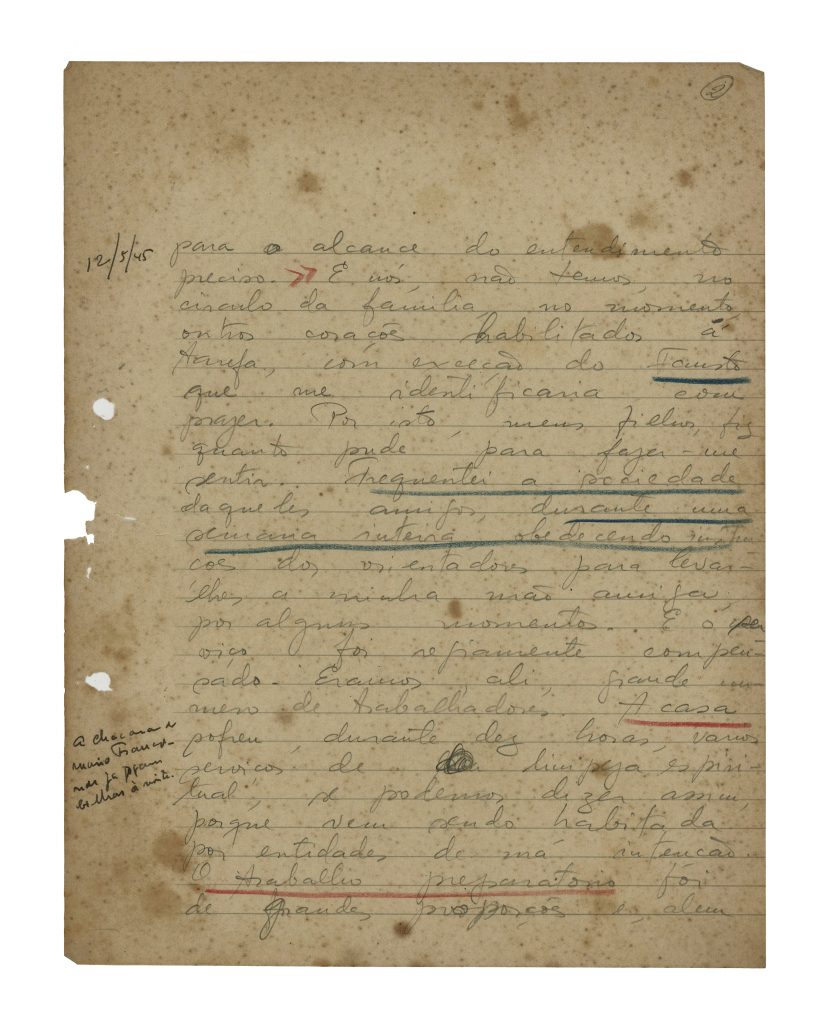 2
12/5/45
para o alcance do entendimento
preciso. E nós, não temos, no
circulo da familia, no momento,
outros corações habilitados á
tarefa, com exceção do Fausto
que me identificaria com
prazer. Por isto, meus filhos, fiz
quanto pude para fazer-me
sentir. Frequentei a sociedade
daqueles amigos, durante uma
semana inteira obedecendo instru-
ções dos orientadores para levar-
lhes a minha mão amiga,
por alguns momentos. E o ser-
viço foi regiamente compen-
sado. Eramos, ali, grande nu-
mero de trabalhadores. A casa
sofreu, durante dez horas, varios
serviços de limpeza espiri-
tual, se podemos dizer assim,
porque vem sendo habitada
por entidades de má intenção.
O trabalho preparatorio foi
de grandes proporções e, alem
a chacara
mario
à noite.